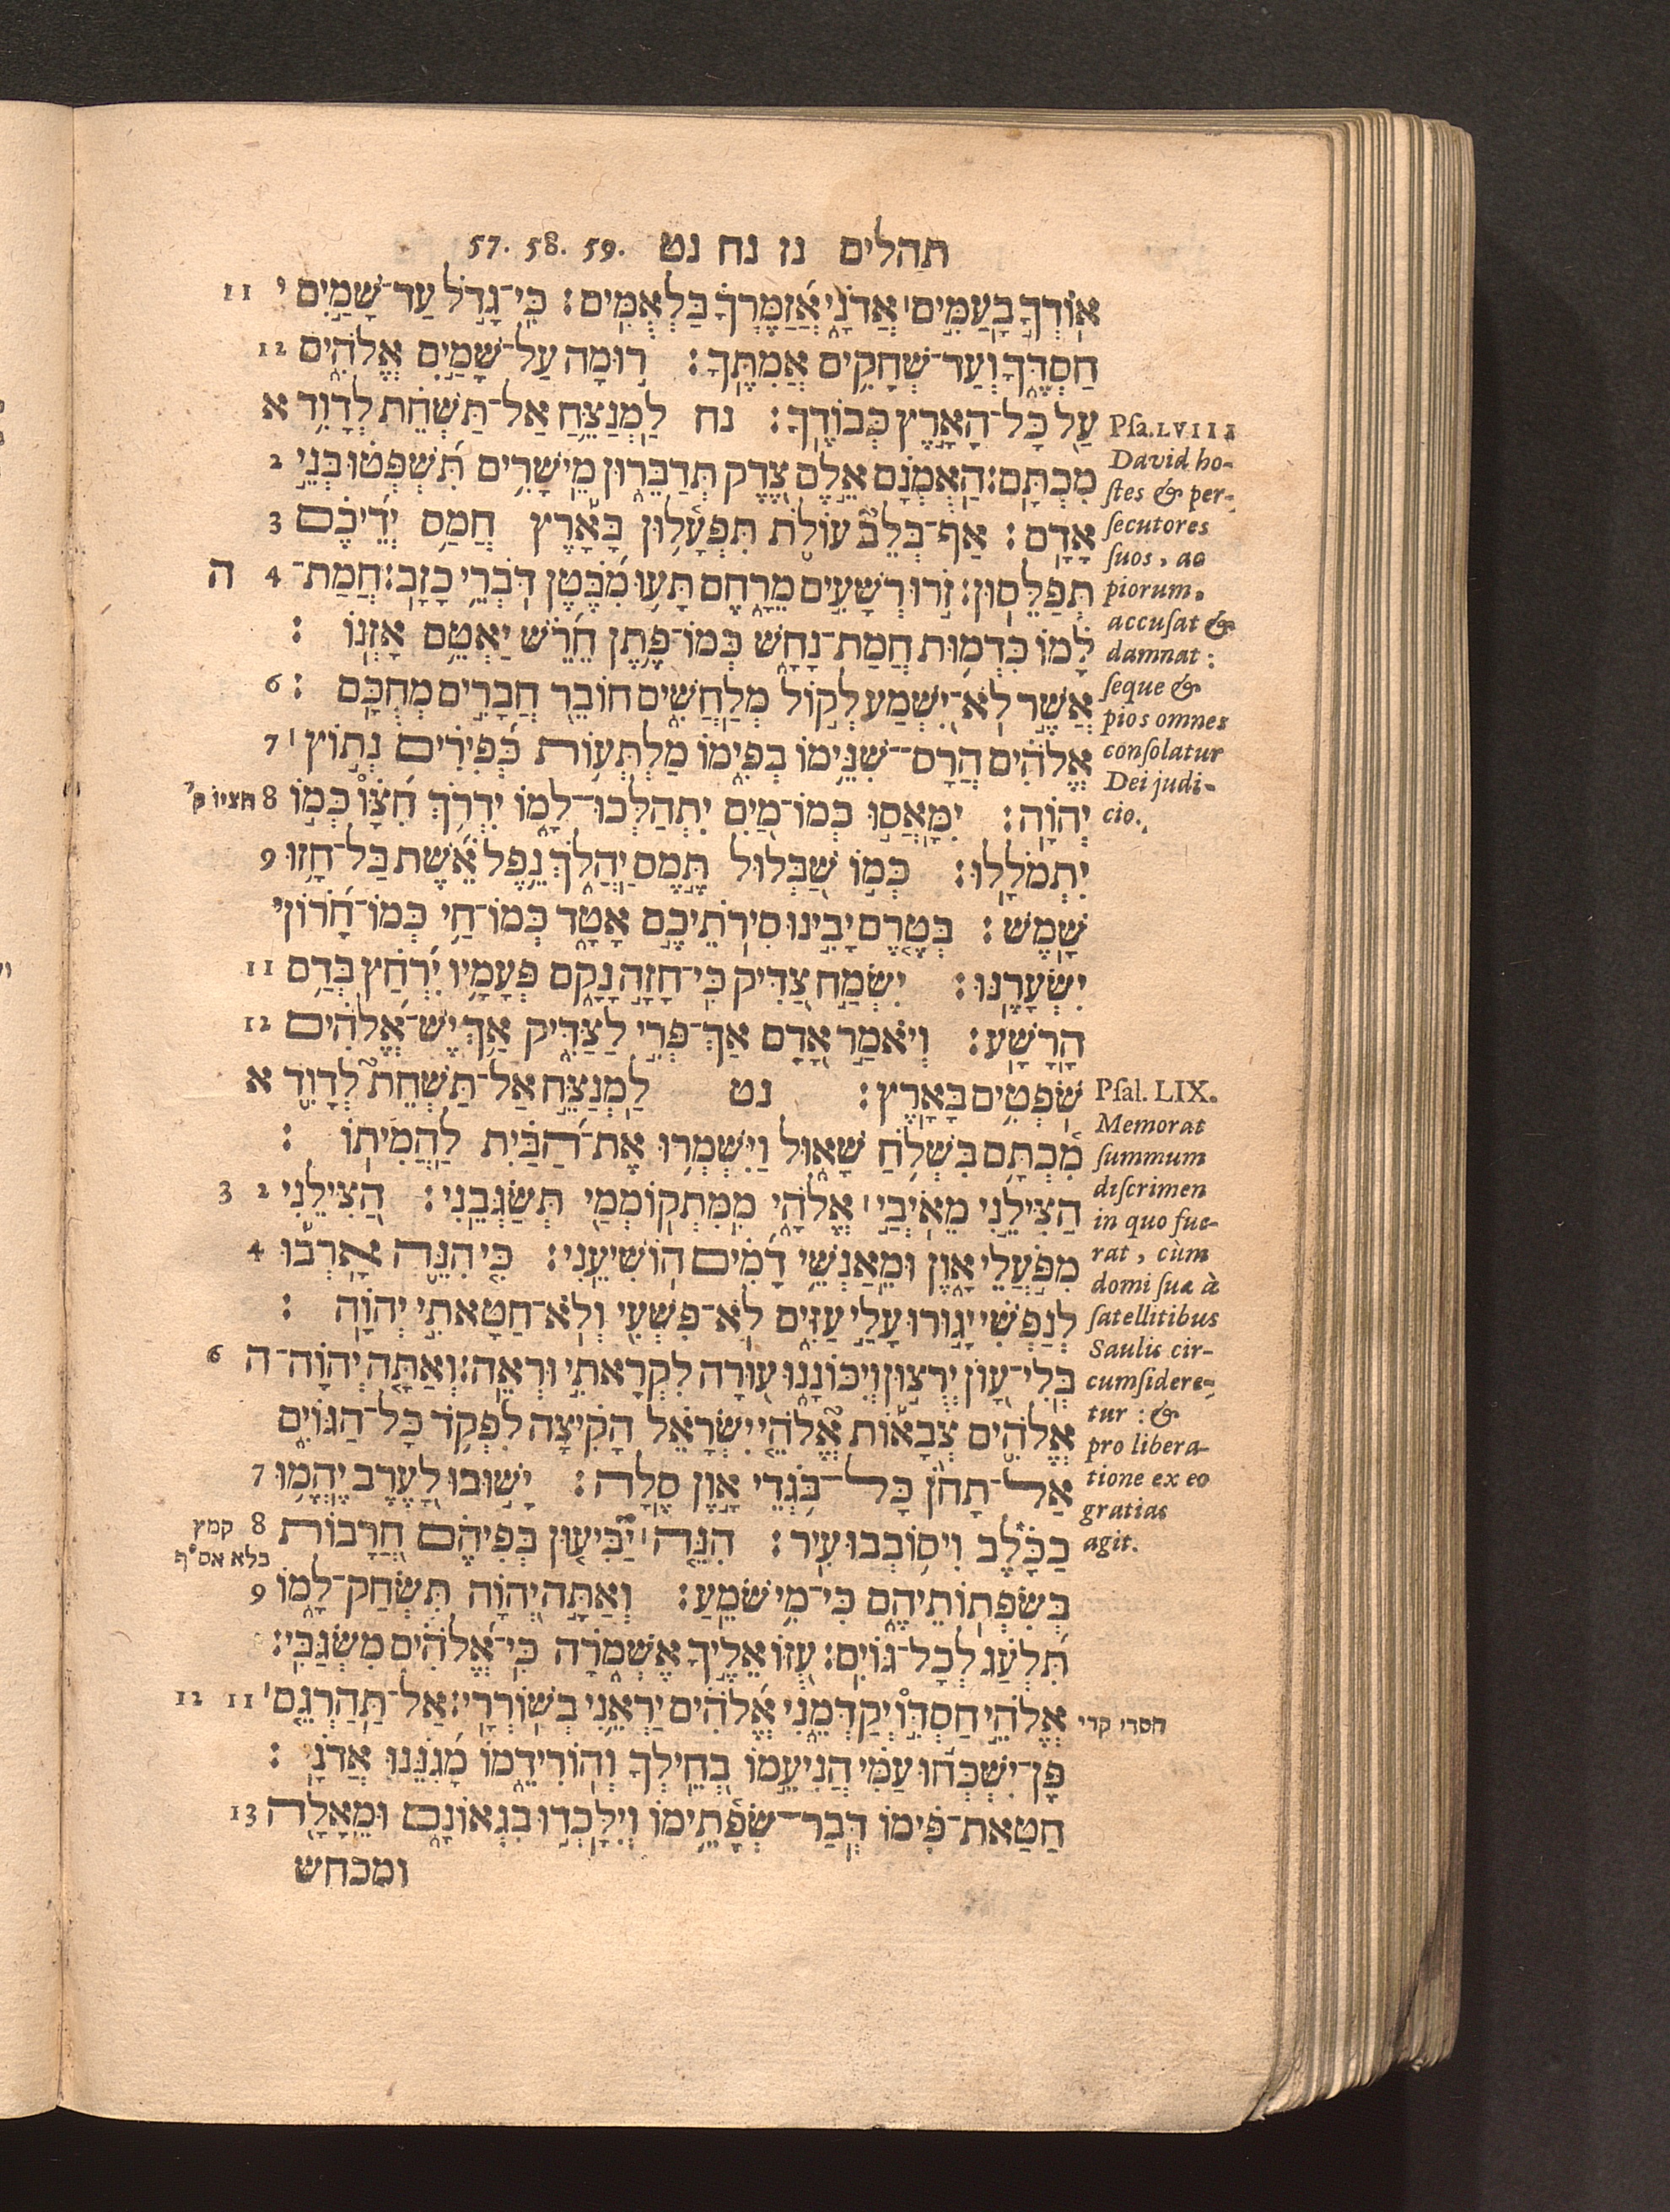 תהלים נז נח נט 57. 58. 59.
אוֹדְךָ בָעַמִּים׀ אֲדֹנָי אֲזַמֶּרְךָ בַּלְאֻמִּים׃ כִּי־גָדֹל עַד־שָׁמַיִם י 11
חַסְדֶּךָ וְעַד־שְׁחָקִים אֲמִתֶּךָ׃ רוּמָה עַל־שָׁמַיִם אֱלֹהִים 12
עַל כָּל־הָאָרֶץ כְּבוֹדֶךָ׃ נח לַמְנַצֵּחַ אַל־תַּשְׁחֵת לְדָוִד א
מִכְתָּם׃ הַאֻמְנָם אֵלֶם צֶדֶק תְּדַבֵּרוּן מֵישָׁרִים תִּשְׁפְּטוּ בְּנֵי 2
אָדָם׃ אַף־בְּלֵב עוֹלֹת תִּפְעָלוּן בָּאָרֶץ חֲמַס יְדֵיכֶם 3
תְּפַלֵּסוּן׃ זֹרוּ רְשָׁעִים מֵרָחֶם תָּעוּ מִבֶּטֶן דֹּבְרֵי כָזָב׃ חֲמַת־ 4 ה
לָמוֹ כִּדְמוּת חֲמַת־נָחָשׁ כְּמוֹ־פֶתֶן חֵרֵשׁ יַאְטֵם אָזְנוֹ׃
אֲשֶׁר לֹא־יִשְׁמַע לְקוֹל מְלַחֲשִׁים חוֹבֵר חֲבָרִים מְחֻכָּם׃ 6
אֱלֹהִים הֲרָס־שִׁנֵּימוֹ בְּפִימוֹ מַלְתְּעוֹת כְּפִירִים נְתוֹץ׀ 7
יְהוָֹה׃ יִמָּאֲסוּ כְמוֹ־מַיִם יִתְהַלְּכוּ־לָמוֹ יִדְרֹךְ חִצָּו כְּמוֹ 8 חציו ק׳
יִתְמֹלָלוּ׃ כְּמוֹ שַׁבְּלוּל תֶּמֶס יַהֲלֹךְ נֵפֶל אֵשֶׁת בַּל־חָזוּ 9
שָׁמֶשׁ׃ בְּטֶרֶם יָבִינוּ סִירֹתֵיכֶם אָטָד כְּמוֹ־חַי כְּמוֹ־חָרוֹן י
יִשְׂעָרֶנּוּ׃ יִשְׂמַח צַדִּיק כִּי־חָזָה נָקָם פְּעָמָיו יִרְחַץ בְּדַם 11
הָרָשָׁע׃ וְיֹאמַר אָדָם אַךְ־פְּרִי לַצַּדִּיק אַךְ יֵשׁ־אֱלֹהִים 12
שֹׁפְטִים בָּאָרֶץ׃ נט לַמְנַצֵּחַ אַל־תַּשְׁחֵת לְדָוִד א
מִכְתָּם בִּשְׁלֹחַ שָׁאוּל וַיִּשְׁמְרוּ אֶת־הַבַּיִת לַהֲמִיתוֹ׃
הַצִּילֵנִי מֵאֹיְבַי׀ אֱלֹהָי מִמִּתְקוֹמְמַי תְּשַׂגְּבֵנִי׃ הַצִּילֵנִי 2 3
מִפֹּעֲלֵי אָוֶן וּמֵאַנְשֵׁי דָמִים הוֹשִׁיעֵנִי׃ כִּי הִנֵּה אָרְבוּ 4
לְנַפְשִׁי יָגוּרוּ עָלַי עַזִּים לֹא־פִשְׁעִי וְלֹא־חַטָּאתִי יְהוָֹה׃
בְּלִי־עָוֹן יְרֻצוּן וְיִכּוֹנָנוּ עוּרָה לִקְרָאתִי וּרְאֵה׃ וְאַתָּה יְהוָֹה־ ה 6
אֱלֹהִים צְבָאוֹת אֱלֹהֵי יִשְׂרָאֵל הָקִיצָה לִפְקֹד כָּל־הַגּוֹיִם
אַל־תָּחֹן כָּל־בֹּגְדֵי אָוֶן סֶלָה׃ יָשׁוּבוּ לָעֶרֶב יֶהֱמוּ 7
כַכָּלֶב וִיסוֹבְבוּ עִיר׃ הִנֵּה׀ יַבִּיעוּן בְּפִיהֶם חֲרָבוֹת 8 קמץ
בלא אס״ף
בְּשִׂפְתוֹתֵיהֶם כִּי־מִי שֹׁמֵעַ׃ וְאַתָּה יְהוָֹה תִּשְׂחַק־לָמוֹ 9
תִּלְעַג לְכָל־גּוֹיִם׃ עֻזּוֹ אֵלֶיךָ אֶשְׁמֹרָה כִּי־אֱלֹהִים מִשְׂגַּבִּי׃
אֱלֹהֵי חַסְדִּו יְקַדְּמֵנִי אֱלֹהִים יַרְאֵנִי בְשׁוֹרְרָי׃ אַל־תַּהַרְגֵם׀ 11 12
חסדי קרי
פֶּן־יִשְׁכְּחוּ עַמִּי הֲנִיעֵמוֹ בְחֵילְךָ וְהוֹרִידֵמוֹ מָגִנֵּנוּ אֲדֹנָי׃
חַטַּאת־פִּימוֹ דְּבַר־שְׂפָתֵימוֹ וְיִלָּכְדוּ בִגְאוֹנָם וּמֵאָלָה 13
ומכחש
Psa. LVIII
David ho-
stes & per-
secutores
suos, ac
piorum.
accusat &
damnat:
seque &
pios omnes
consolatur
Dei judi-
cio.
Psal. LIX.
Memorat
summum
discrimen
in quo fue-
rat, cùm
domi suæ à
satellitibus
Saulis cir-
cumsidere-
tur: &
pro libera-
tione ex eo
gratias
agit.